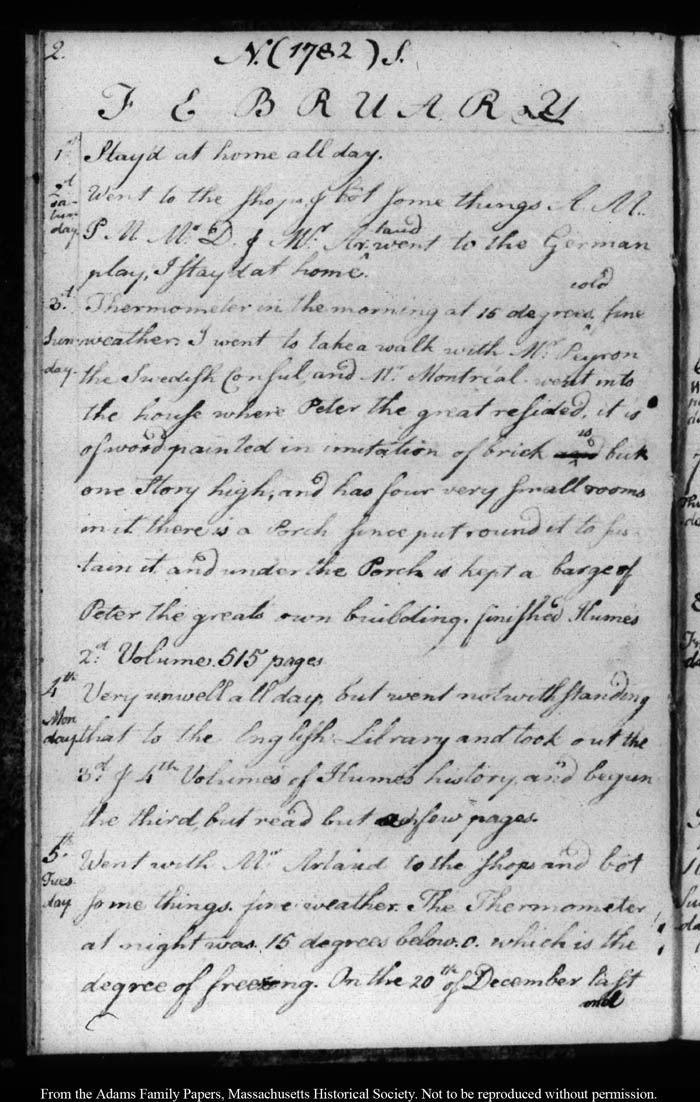 2.
N. (1782) S.
FEBRUARY
1st Stay'd at home all day.
2d Saturday Went to the shops, & bót some things A. M..
P. M. Mr. D. & Mr. Artaud went to the German
play, I stay'd at home.
3d. Sunday. Thermometer in the morning at 15 degrees, cold, fine
weather. I went to take a walk with Mr. Peyron
the Swedish Consul, and Mr. Montréal. went into
the house where Peter the great resided, it is
of wood painted in imitation of brick is but
one story high; and has four very small rooms
in it. there is a Porch since put round it to sus-
tain it. and under the Porch is kept a barge of
Peter the greats own building. finished Humes
2d. Volume. 515 pages
4th Monday Very unwell all day, but went notwithstanding
that to the English Library and took out the
3d. & 4th Volumes of Humes history, and begun
the third, but read but few pages.
5th. Tuesday Went with Mr Artaud to the shops and bót
some things. fine weather. The Thermometer
at night was. 15 degrees below. 0. which is the
degree of freezng. On the 20th of December last
and
From the Adams Family Papers, Massachusetts Historical Society. Not to be reproduced without permission.